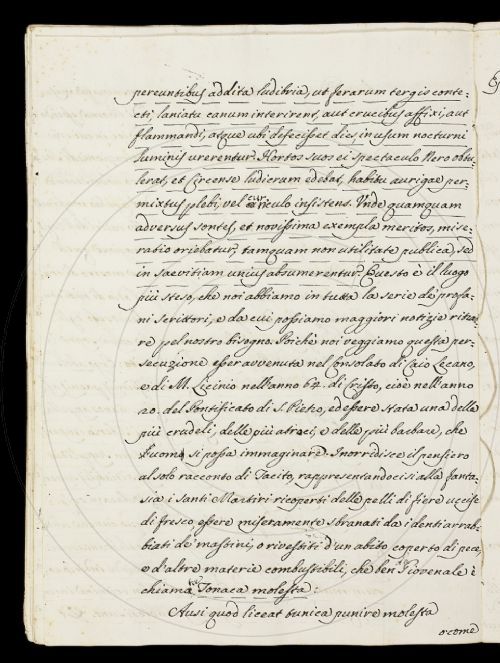 pereuntibus addita ludibria, ut ferarum tergis conte-
cti, laniatu canum interirent, aut crucibus affixi, aut
flammandi, atque ubi defecisset dies, in usum nocturni
luminis urerentur. Hortos suos ei spectaculo Nero obtu-
lerat, et Circense ludicrum edebat, habitu aurigae per-
mixtus plebi, vel curriculo insistens. Unde quamquam
adversus sontes, et novissima exempla meritos, mise-
ratio oriebatur, tamquam non utilitate publica, sed
in saevitiam unius absumerentur. Questo è il luogo
più steso, che noi abbiamo in tutta la serie de' profa-
ni scrittori, e da cui possiamo maggiori notizie ritra-
re pel nostro bisogno. Poichè noi veggiamo questa per-
secuzione esser avvenuta nel Consolato di Caio Lecano,
e di M. Licinio nell'anno 64. di Cristo, cioè nell'anno
20. del Pontificato di S. Pietro, ed essere stata una delle
più crudeli, delle più atroci, e delle più barbare, che
si possa immaginare. Inorridisce il pensiero
al solo racconto di Tacito, rappresentandoci alla fanta-
sia i Santi Martiri ricoperti delle pelli di fiere uccise
di fresco essere miseramente sbranati da i denti arrab-
biati de' mastini, o rivestiti d'un abito coperto di pece,
e d'altre materie combustibili, che ben Giovenale
chiama Tonaca molesta:
Ausi quod liceat tunica punire molesta
o come